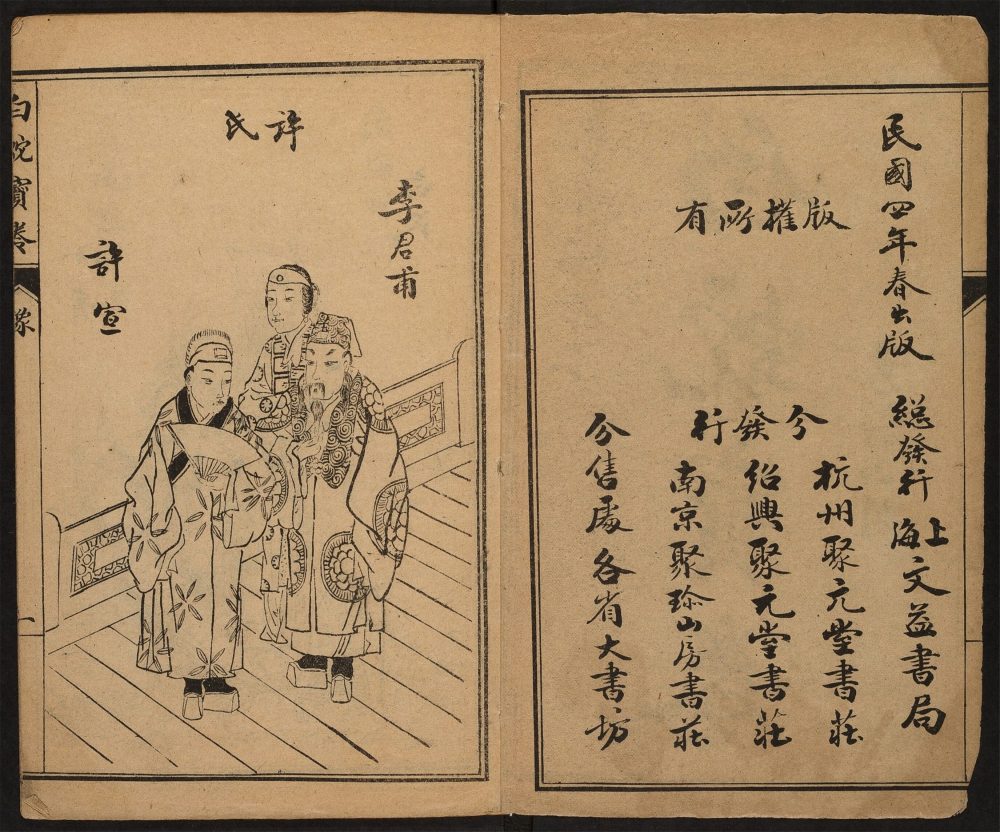 民國四年春出版
總發行 上海文益書局
版權所有
分發行
杭州聚元堂書莊
紹興聚元堂書莊
南京聚珍山房書莊
分售處各省大書坊
李君甫
許氏
許宣
白蛇寳卷
像
一